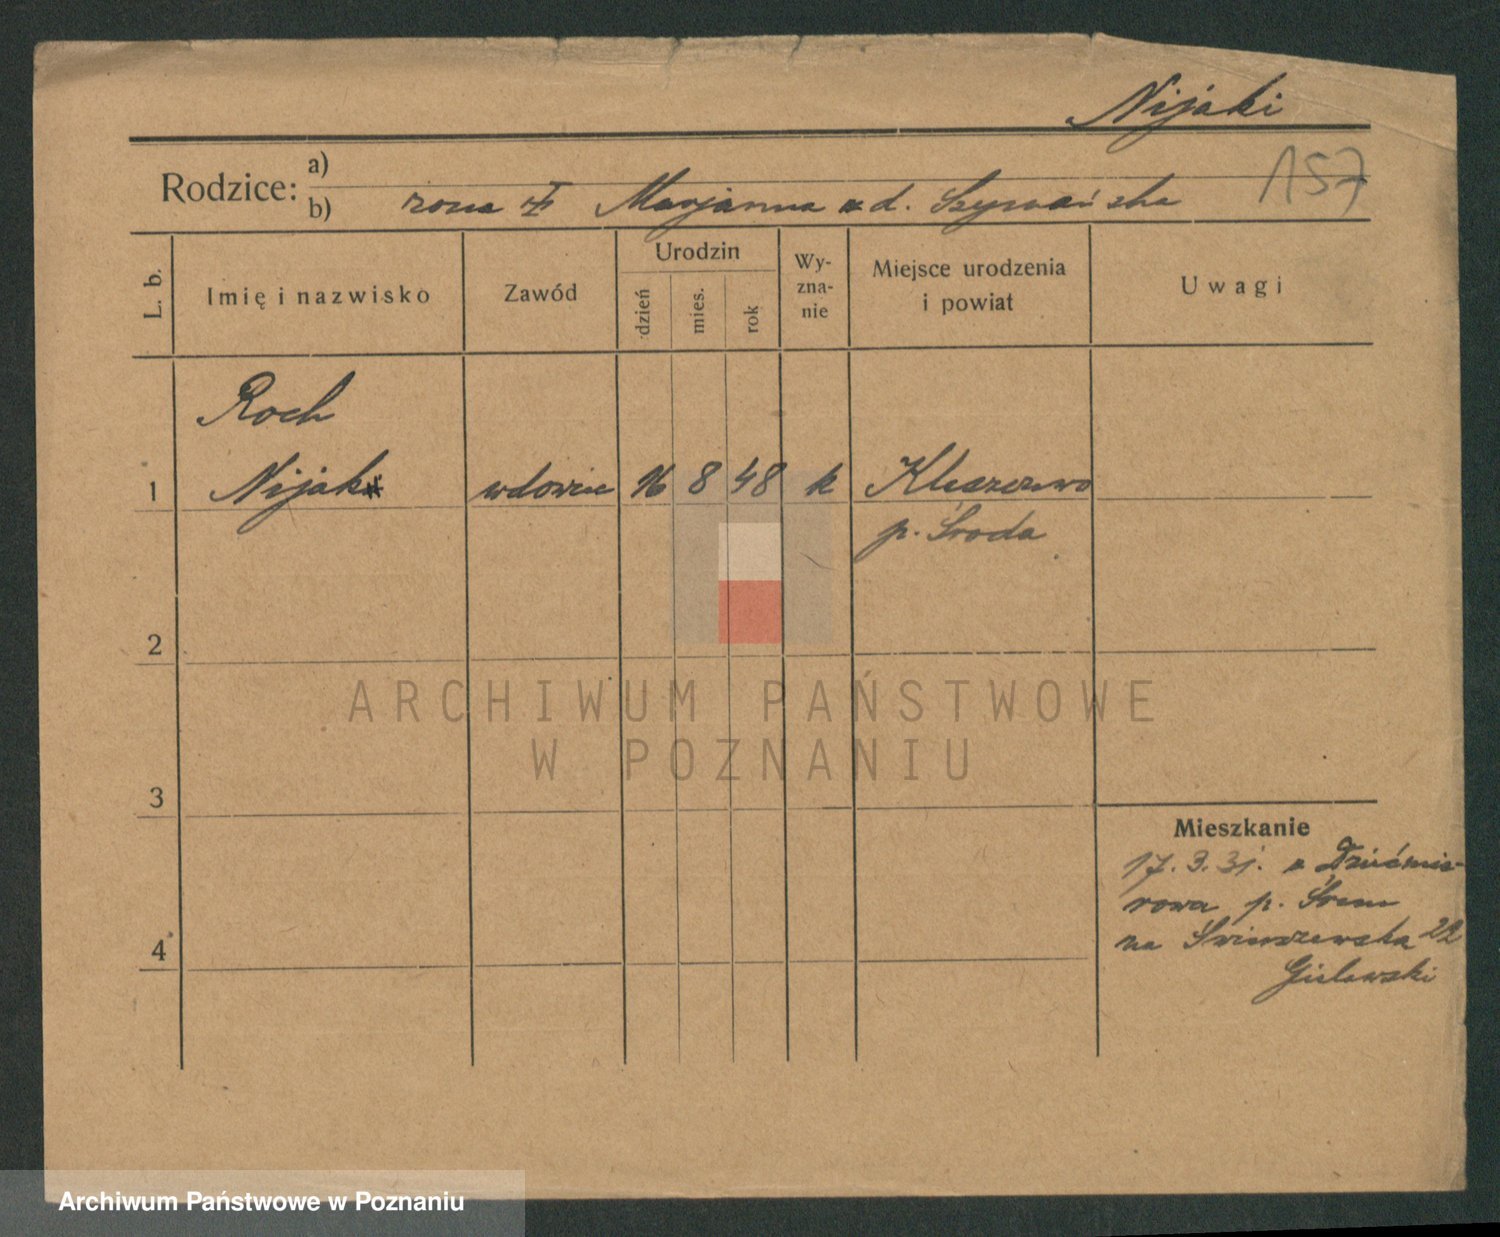 Nijaki
157
Rodzice: a)
b) żona † Marjanna z d. Szymańska
L. b.
Imię i nazwisko
Zawód
Urodzin
dzień
mies.
rok
Wy-
zna-
nie
Miejsce urodzenia
i powiat
Uwagi
Roch
1 Nijaki wdowiec 16 8 48 k Kleszczewo
p. Środa
2
ARCHIWUM PAŃSTWOWE
W POZNANIU
3
Mieszkanie
17.3.31. z
p. Śrem
4
na 22
Archiwum Państwowe w Poznaniu